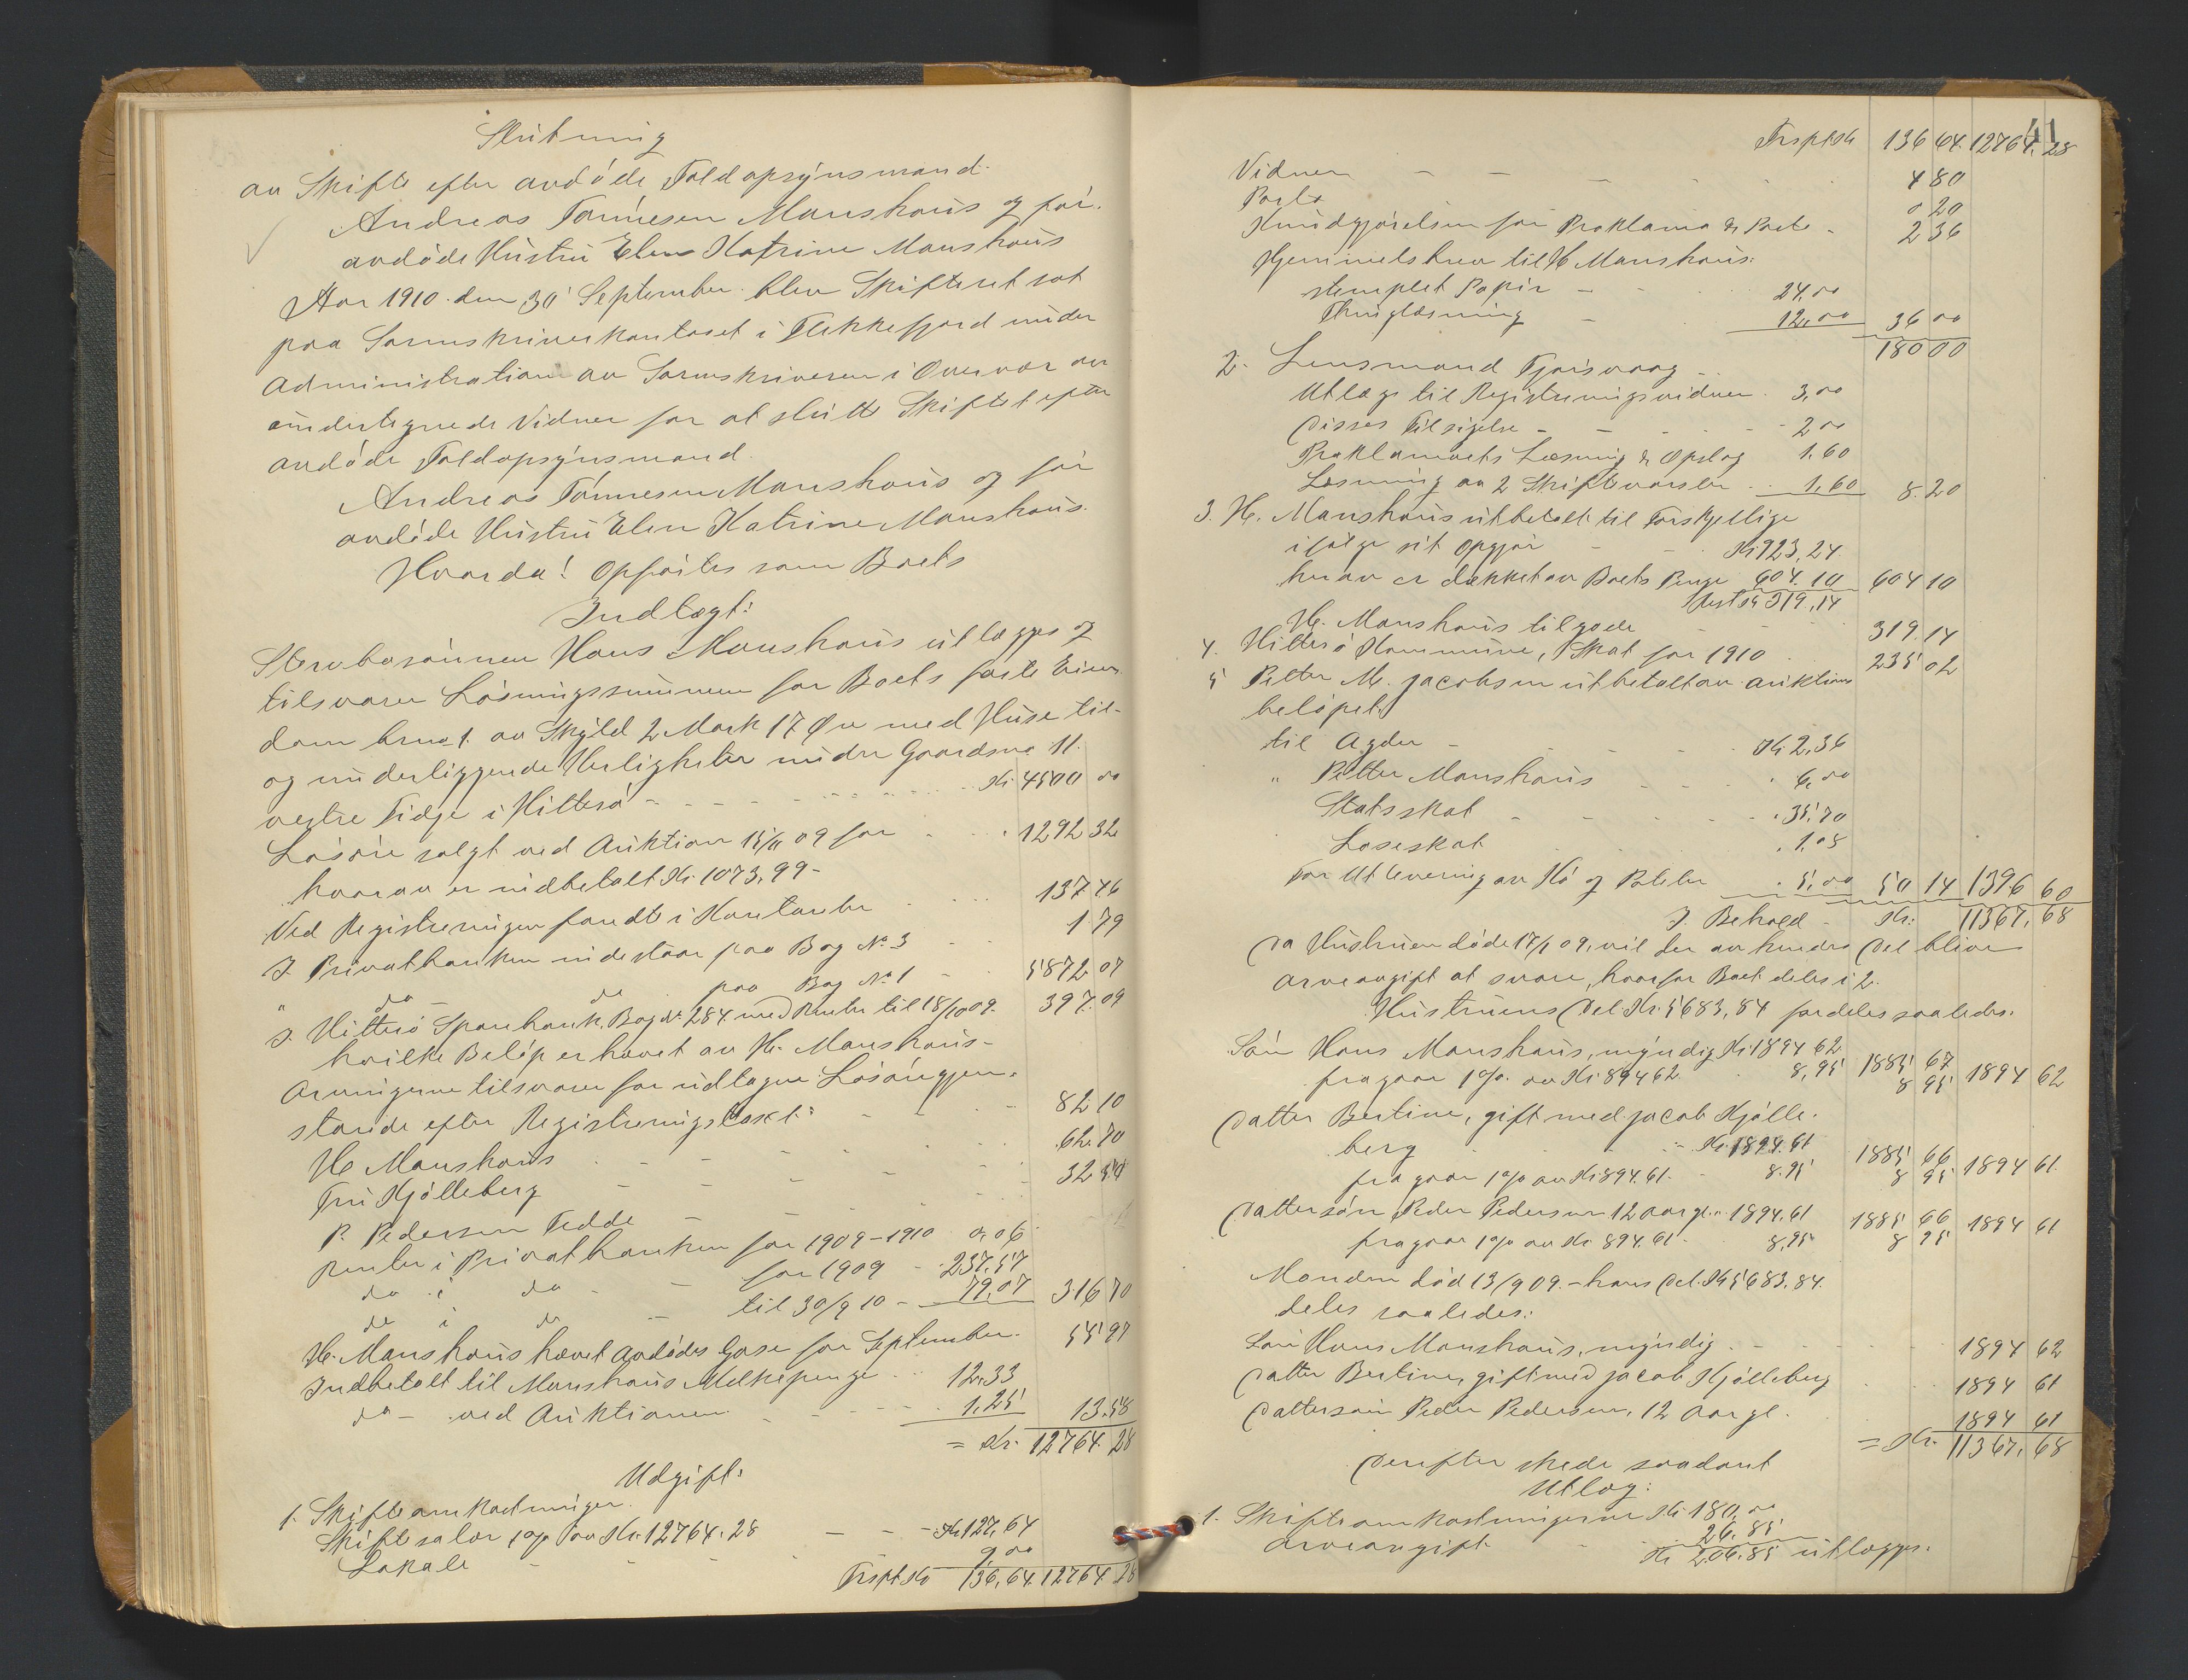 Slutning
av Skifte efter avdøde Toldopsynsmand
Andreas Tønnesen Maushaus og før
avdøde Hustru Elen Katrine Maushaus
Aar 1910 den 30 September blev Skifteret sat
paa Sorenskriverkontoret i Flekkefjord under
Administration av Sorenskriveren i Overvær av
undertegnede Vidner for at slutte Skiftet efter
avdøde Toldopsynsmand
Andreas Tønnesen Maushaus og før
avdøde Hustru Elen Katrine Maushaus.
Hvorda! Opførtes som Boets
Indtægt:
Stervbosønnen Hans Maushaus utlægges og
tilsvarer Løsningssummen for Boets faste Eien
dom brno 1. av Skyld 2 Mark 17 Øre med Huse til-
og underliggende Herligheter under Gaardsno 11.
vestre Fidje i Hitterø - Kr 4500 00
Løsøre solgt ved Auktion 15/11 09 for 1292 32
hvorav er indbetalt Kr. 1073,99 -
Ved Registreringen fandts i Kontanter 137 46
I Privatbanken indestaar paa Bog No 3 1 79
" do do paa Bog No 1 5872 07
I. Hitterø Sparebank, Bog No 284 med Renter til 18/10 09. 397.09
hvilke Beløp er hævet av H. Maushaus -
Arvingerne tilsvarer for udtagne Løsøregjen-
stande efter Registreringstaxt:
H Maushaus 82 10
Fru Kjølleberg 62.70
P. Pedersen Fedde 32 50
Renter i Privatbanken for 1909-1910 0,06
do i do - for 1909 - 237.57
do i do - til 30/9 10 - 79,07 316 70
H. Maushaus hævet Avdødes Gase for September 55 97
Indbetalt til Maushaus Melkepenge 12,33
do - ved Auktionen 1,25 13.58
= Kr. 12764.28
Udgift:
1. Skifteomkostninger.
Skiftesalær 1 % av Kr. 12764.28 - Kr 127,64
Lokale 9,00
Trspt Kr 136,64 12764 28
41
Trspt Kr 136 64. 12764. 28
Vidner 4 80
Porto 0 20
Kundgjørelsen for Proklama & Porto 2 36
Hjemmelsbrev til H Maushaus:
stemplet Papir - 24,00
Thinglæsning - 12,00 36 00
180 00
2. Lensmand Tjørsvaag
Utlæg til Registreringsvidner 3,00
Disses Tilsigelse - 2 00
Proklamaets Læsning & Opslag 1.60
Læsning av 2 Skiftevarsler 1,60 8.20
3. H. Maushaus utbetalt til Forskjellige
ifølge sit Opgjør - Kr 923,24
herav er dækket av Boets Penge 604.10 604 10
Rest Kr 319,14
H. Maushaus tilgode 319.14
4. Hitterø Kommune, Skat for 1910 235 02
5 Petter M. Jacobsen utbetalt av Auktions
beløpet
til Agder - Kr. 2,36
" Petter Maushaus 6,00
Statsskat 35,70
Loseskat 1,08
For Utlevering av Hø og Poteter 5,00 50 14 1396 60
I. Behold - Kr: 11367.68
Da Hustruen døde 17/1 09, vil der av hendes Del blive
Arveavgift at svare, hvorfor Boet deles i 2.
Hustruens Del Kr. 5683,84 fordeles saaledes.
Søn Hans Maushaus, myndig Kr 1894 62
fragaar 1 % av Kr 894 62 8,95 1885 67 8 95 1894 62
Datter Bertine, gift med Jacob Kjølle-
berg - Kr. 1894.61
fragaar 1 % av Kr 894.61 - 8.95 1885 66 8 95 1894 61
Dattersøn Peder Pedersen 12 Aar gl. 1894.61
fragaar 1 % av Kr. 894.61 8,95 1885 66 8 95 1894 61
Manden død 13/9 09. - hans Del Kr 5683.84
deles saaledes:
Søn Hans Maushaus, myndig 1894 62
Datter Bertine, gift med Jacob Kjølleberg 1894 61
Dattersøn Peder Pedersen, 12 Aar gl. 1894 61
= Kr. 11367,68
Derefter skede saadant
Utlæg:
1. Skifteomkostningerne Kr 180,00
Arveavgift 26.85
Kr 206.85 utlægges.